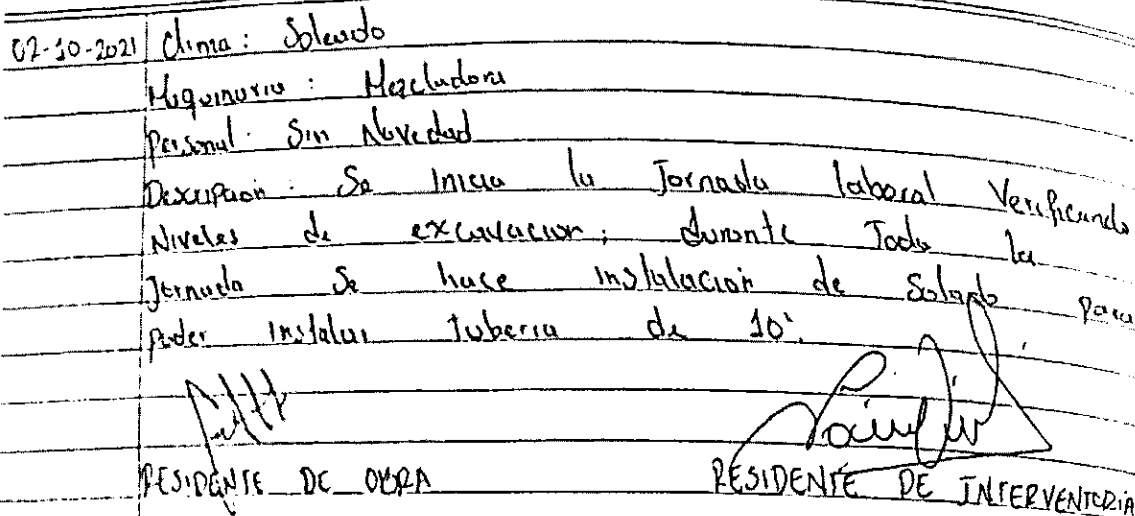 02-10-2021 Clima: Soleado
Maquinaria: Mezcladora
Personal: Sin Novedad
Descripcion: Se Inicia la Jornada laboral Verificando
Niveles de excavacion; durante Toda la
Jornada Se hace instalacion de Solado para
poder instalar tuberia de 10'.
RESIDENTE DE OBRA RESIDENTE DE INTERVENTORIA